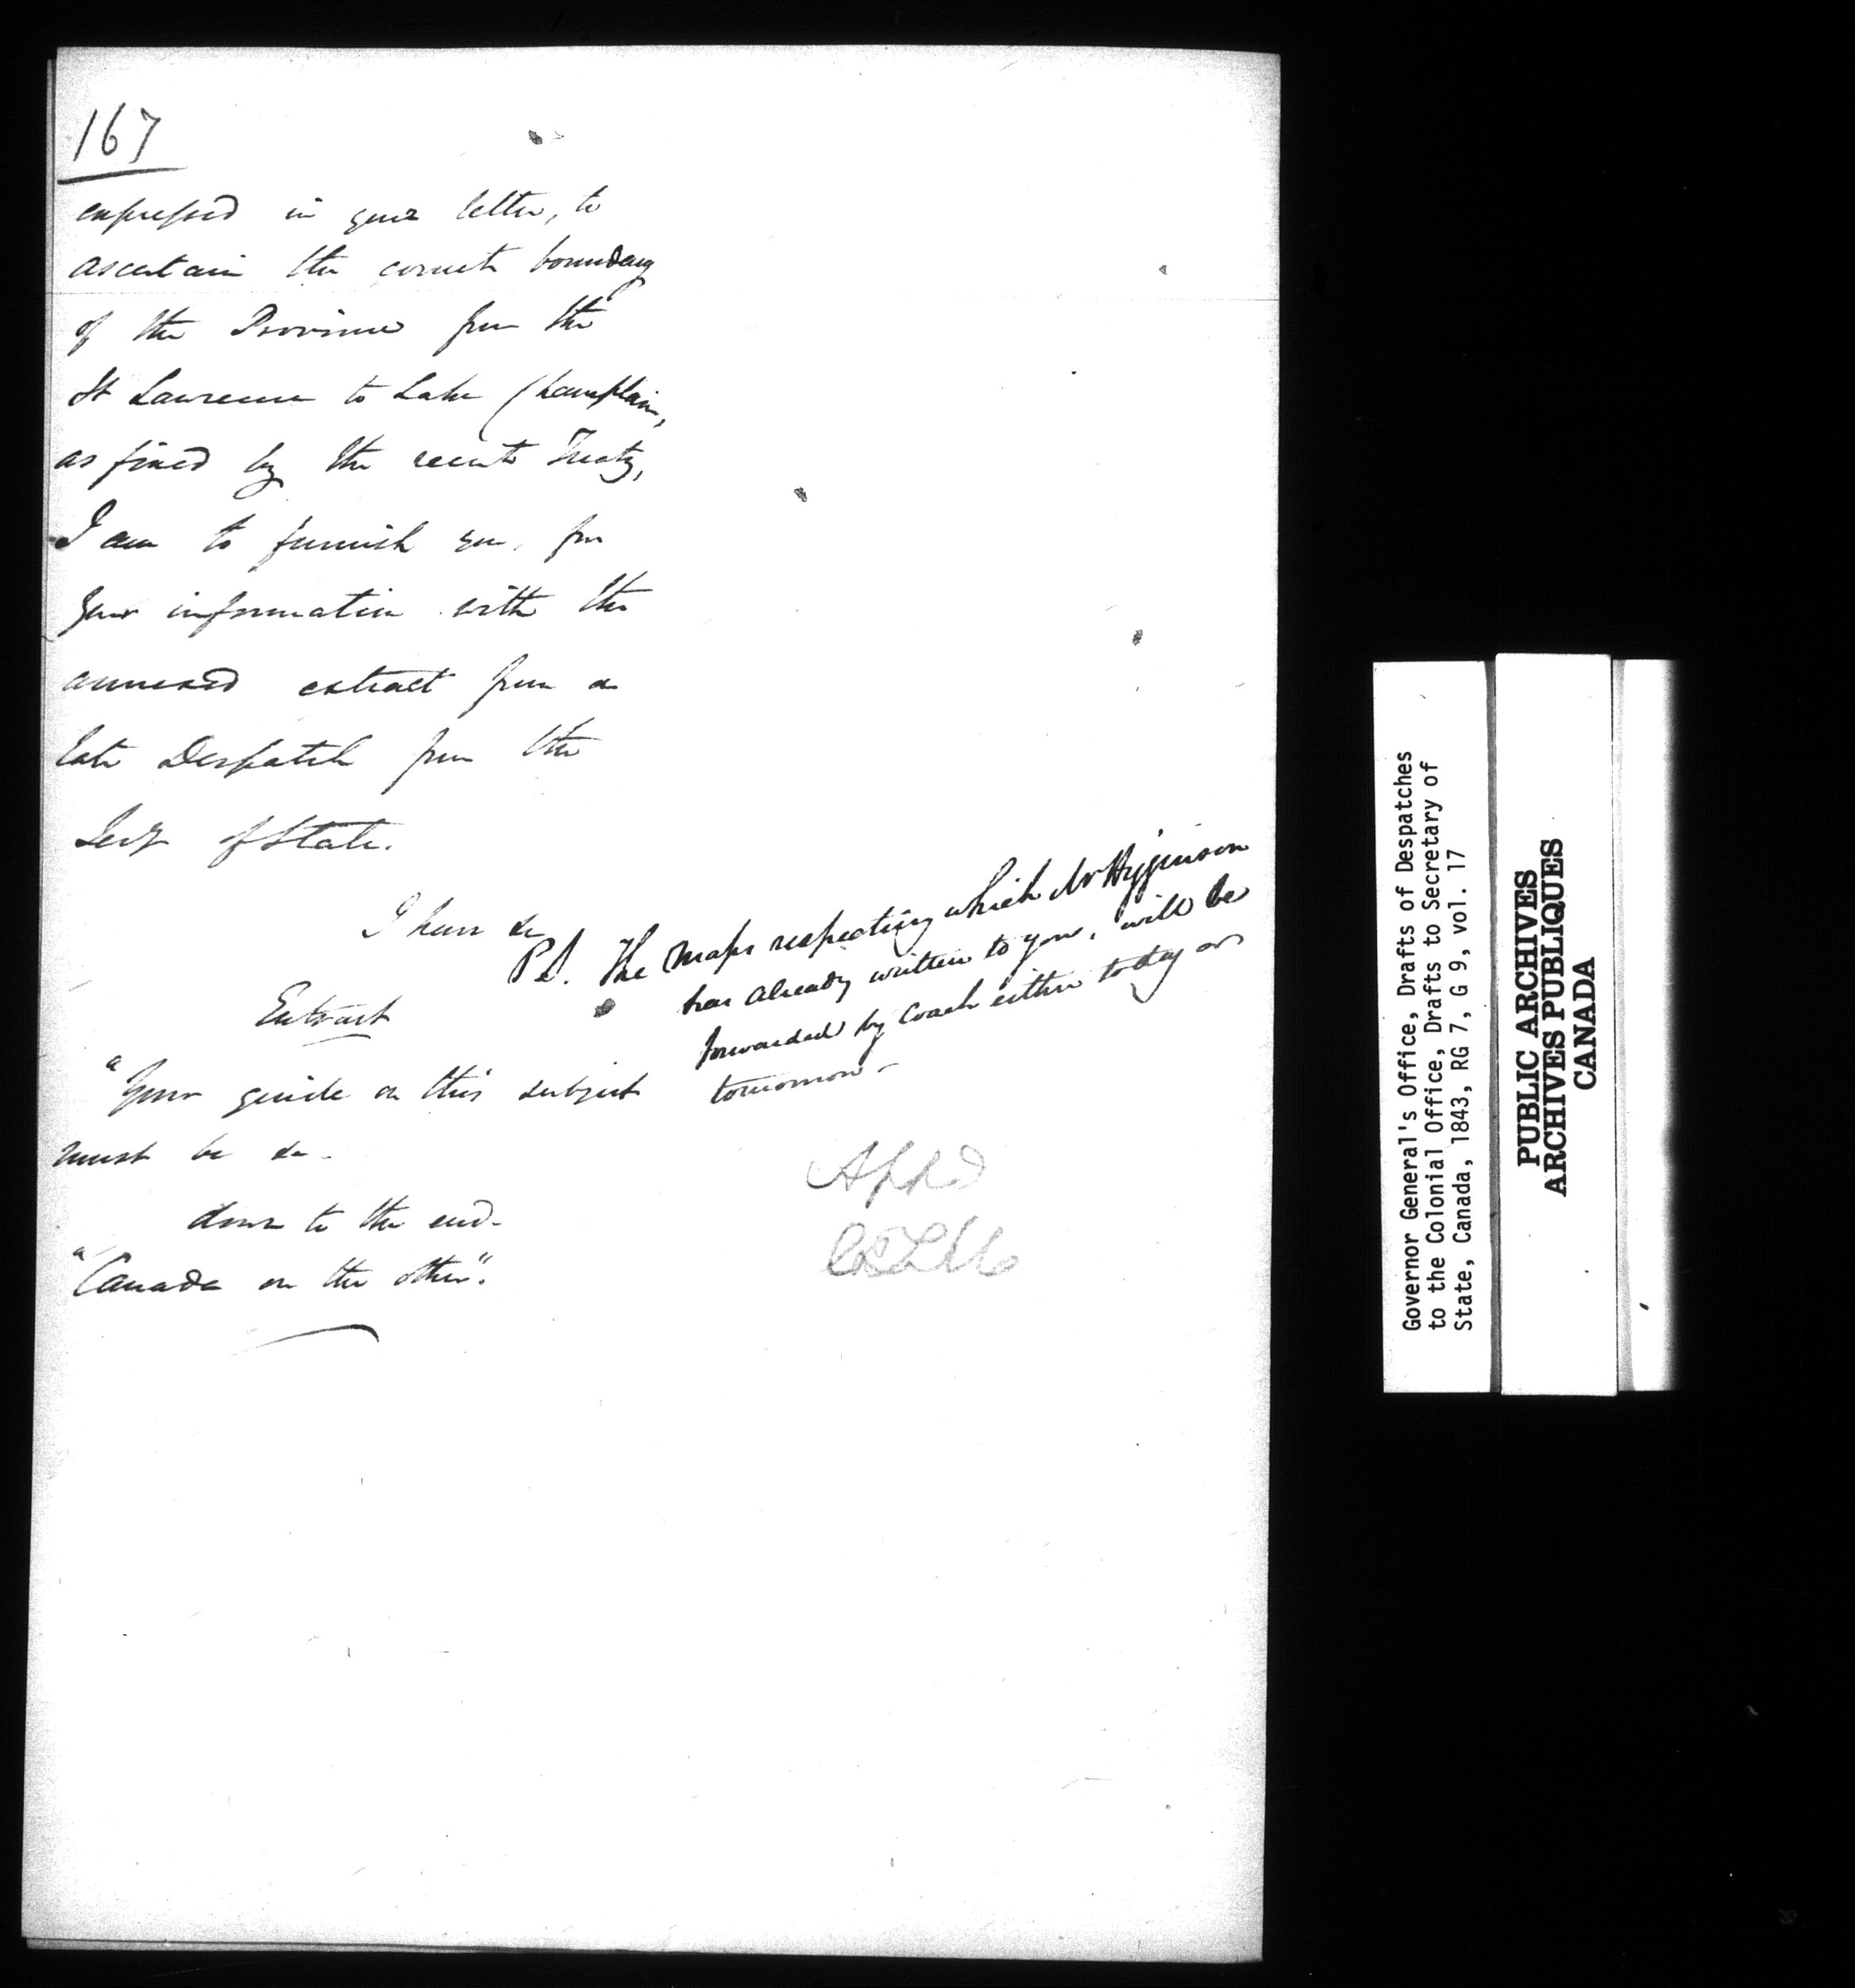 167
expressed in your letter, to
ascertain the correct boundary
of the Province from the
St Lawrence to Lake Champlain,
as fixed by the recent Treaty,
I am to furnish you, for
your information with the
annexed extract from a
late Despatch from the
Secy of State.
I have &c
P.S. The Maps respecting which Mr Higginson
has already written to you, will be
forwarded by Coach either today or
tomorrow -
Extract
"Your guide on this subject
must be &c -
down to the end -
"Canada on the other".
Appd
Governor General's Office, Drafts of Despatches
to the Colonial Office, Drafts to Secretary of
State, Canada, 1843, RG 7, G 9, vol. 17
PUBLIC ARCHIVES
ARCHIVES PUBLIQUES
CANADA